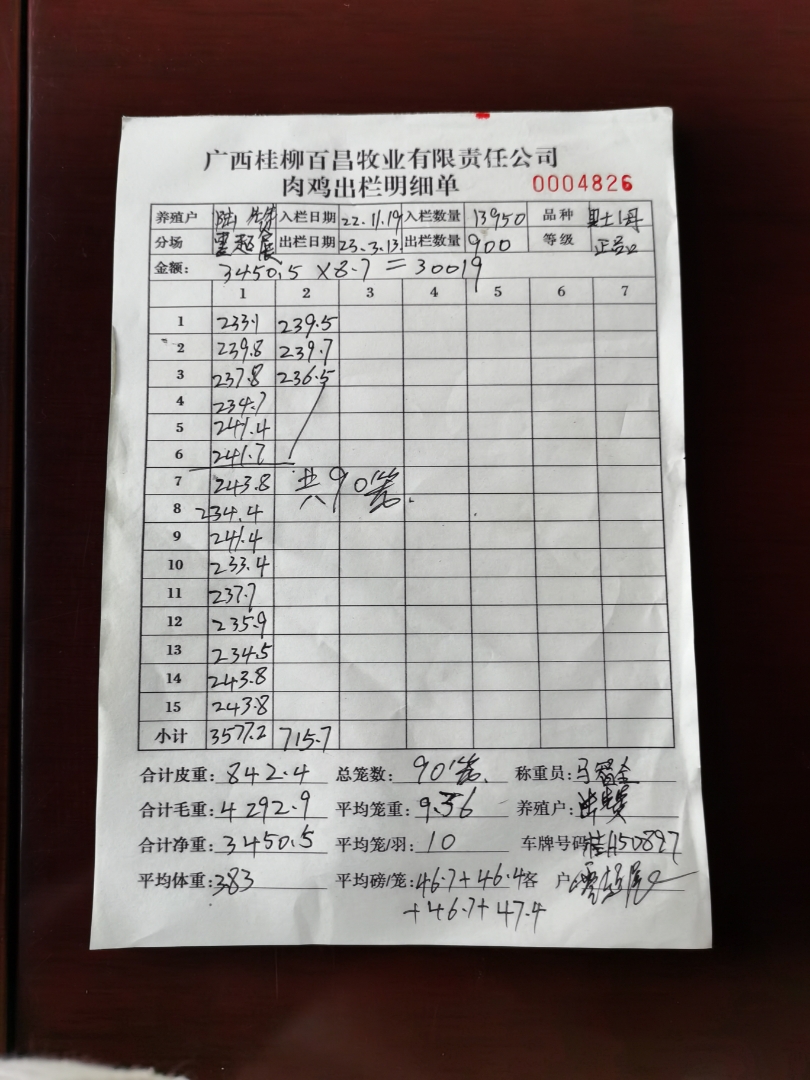 广西桂柳百昌牧业有限责任公司
肉鸡出栏明细单 0004826
养殖户 陆 入栏日期 22.11.19 入栏数量 13950 品种
分场 出栏日期 23.3.13 出栏数量 900 等级 正
金额: 3450.5 × 8.7 = 30019
1 2 3 4 5 6 7
1 233.1 239.5
2 239.8 239.7
3 237.8 236.5
4 234.7
5 241.4
6 241.7
7 243.8 共90笼.
8 234.4
9 241.4
10 233.4
11 237.7
12 235.9
13 234.5
14 243.8
15 243.8
小计 3577.2 715.7
合计皮重: 842.4 总笼数: 90笼. 称重员: 马
合计毛重: 4292.9 平均笼重: 9.36 养殖户:
合计净重: 3450.5 平均笼/羽: 10 车牌号码 桂A50897
平均体重: 383 平均磅/笼: 46.7+46.4 客 户
+46.7+47.4